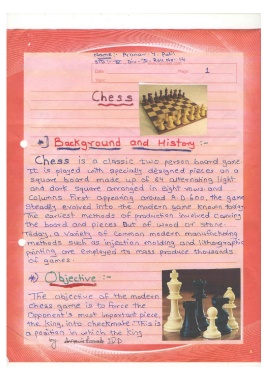 Name :- Pranav Y. Patil
STD - IV Div - D, Roll No - 14
Date
Page 1
Chess
*) Background and History :-
Chess is a classic two person board game
It is played with specially designed pieces on a
square board made up of 64 alternating light
and dark square arranged in eight rows and
Columns First appearing around A.D.600, the game
Steadly evolved into the modern game known today
The earliest methods of production involved Carving
the board and pieces Out of wood or stone.
Today, a variety of Common modern manufacturing
methods such as injection molding and lithographic
printing are employed to mass produce thousands
of games.
*) Objective :-
The objective of the modern
Chess game is to force the
Opponent's most important piece,
the king, into checkmate. This is
a position in which the king
by:
IV D